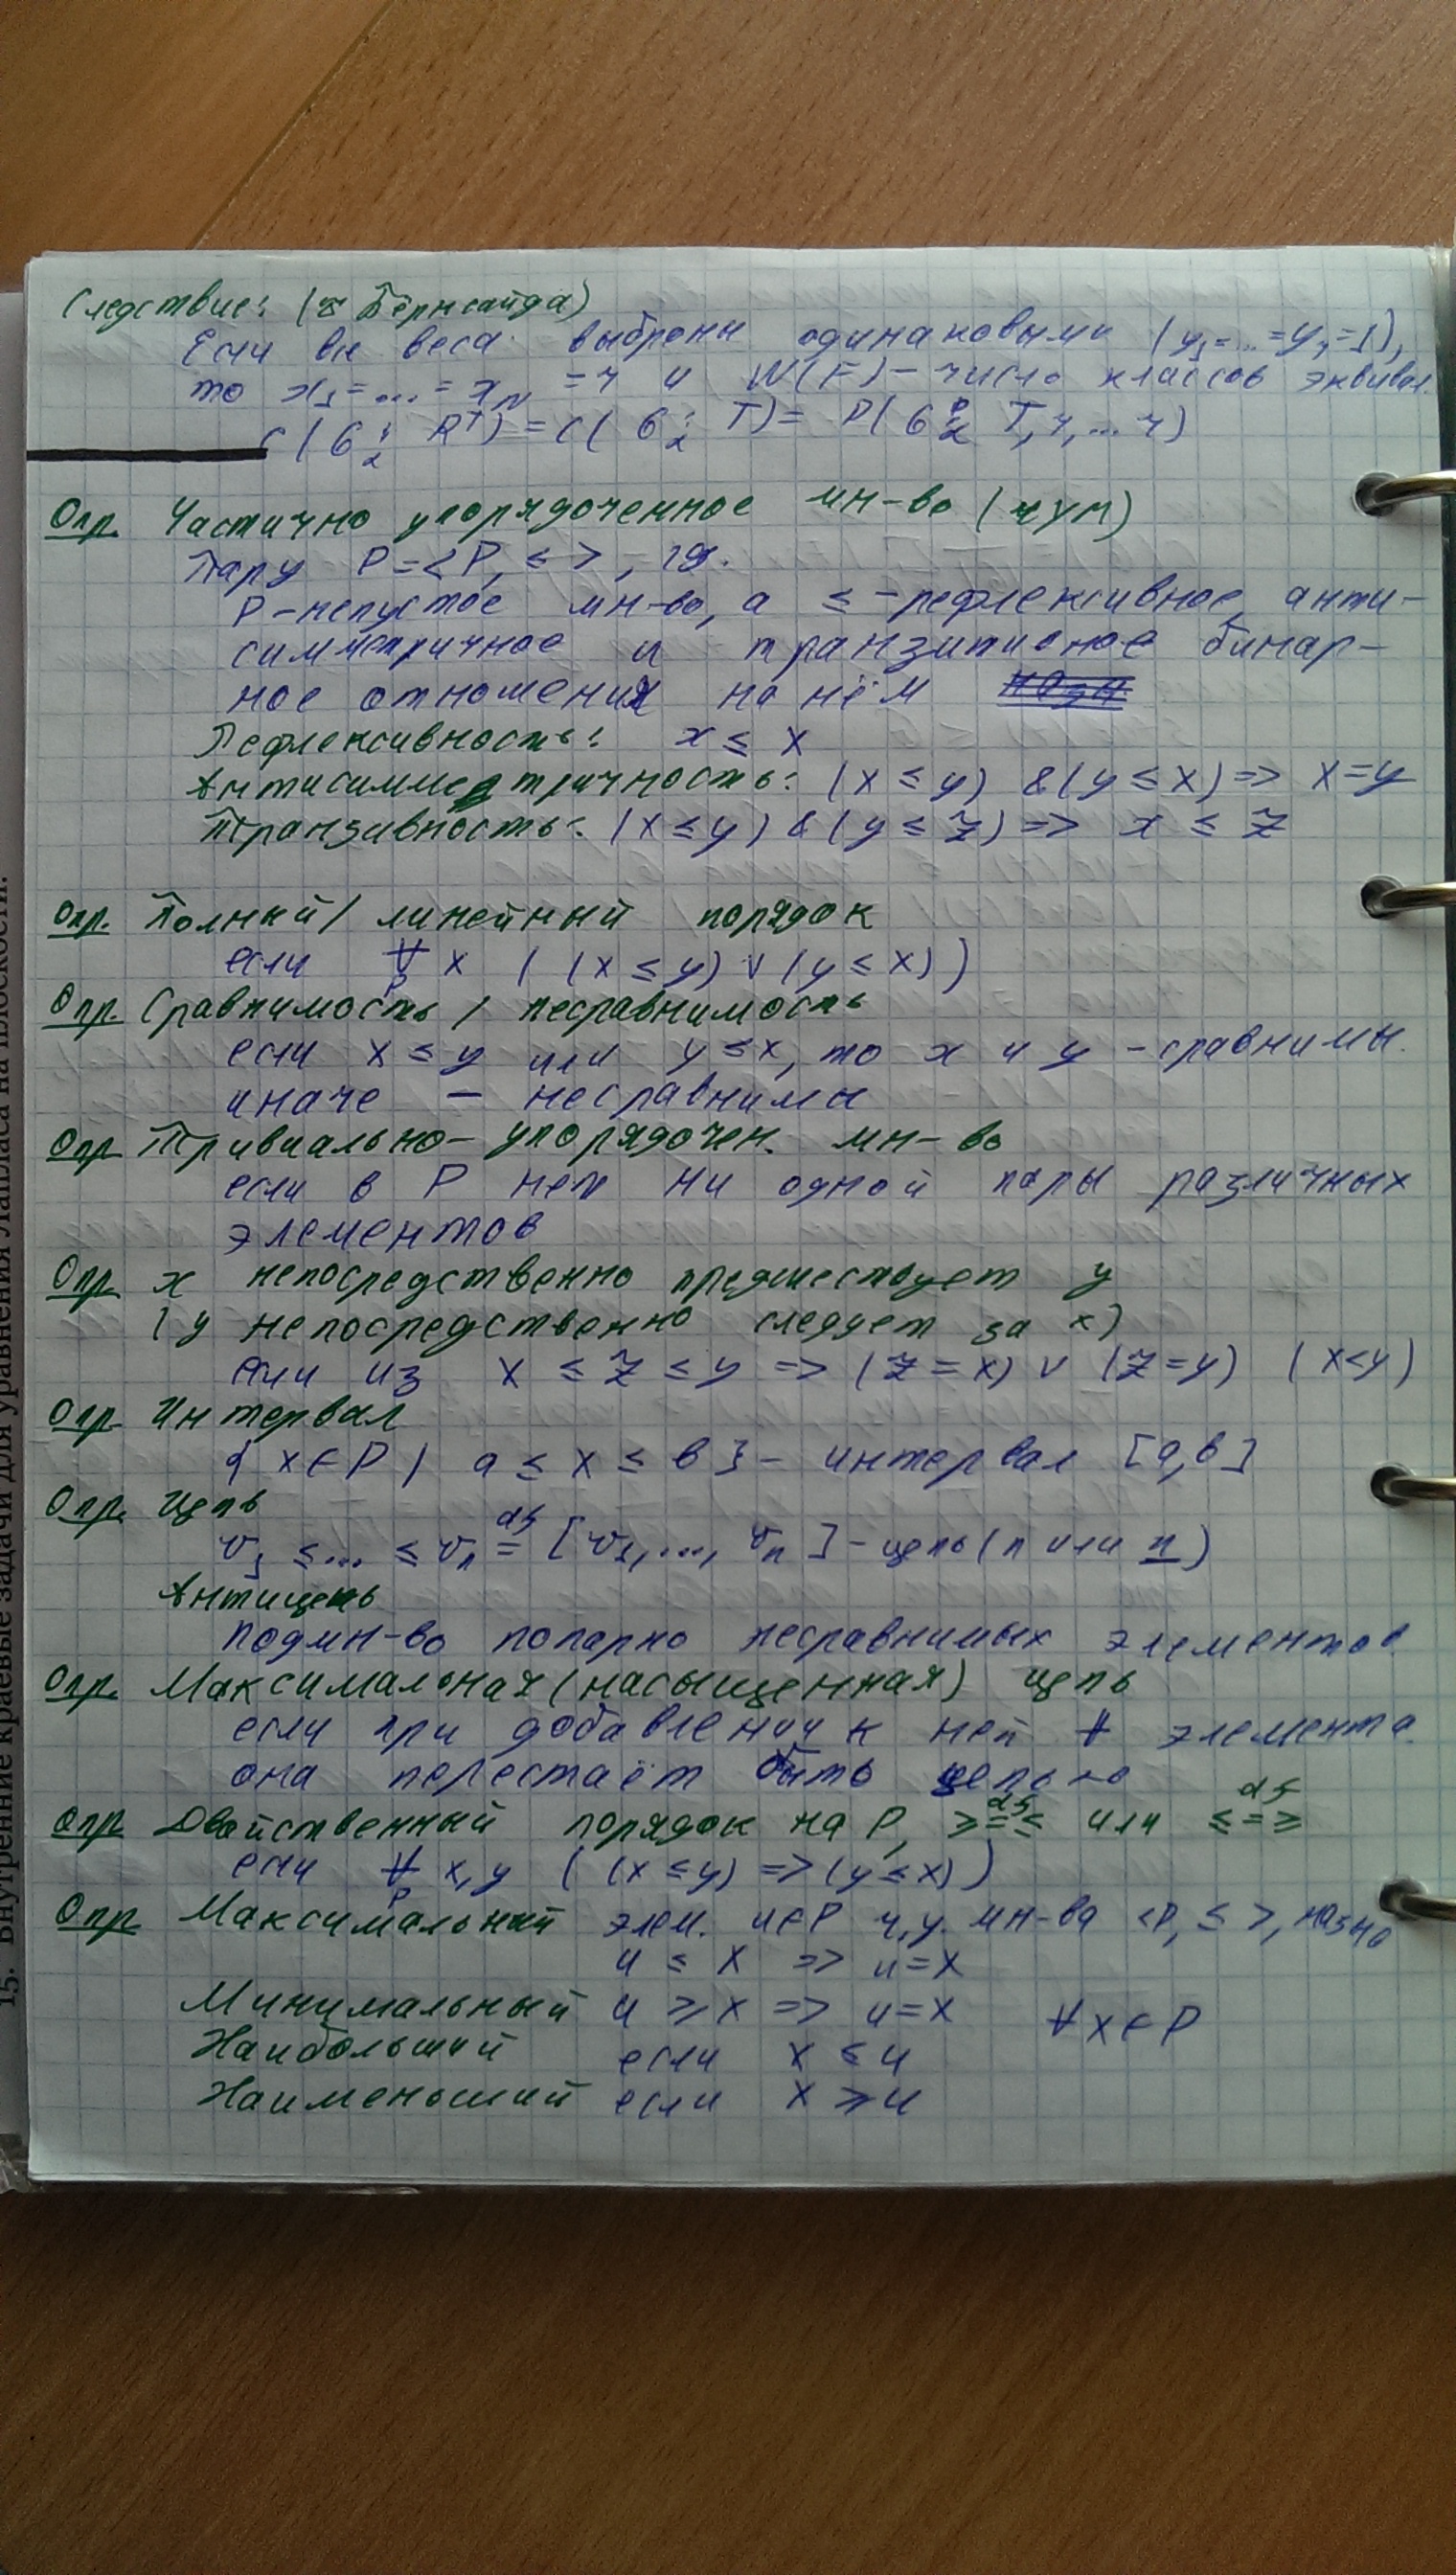 Следствие: (≈ Бёрнсайда)
Если все веса выбраны одинаковыми (y₁=...=yᵣ=1),
то x₁=...=x_N = r и W(F) – число классов эквивал.
C(G : Rᵀ) = C(G : T) = P(G : T, r, ... r)
Опр. Частично упорядоченное мн-во (чум)
Пару P=<P, ≤>, гд.
P – непустое мн-во, а ≤ – рефлексивное, анти-
симметричное и транзитивное бинар-
ное отношения на нём
Рефлексивность: x ≤ x
Антисимметричность: (x ≤ y) &(y ≤ x) => x=y
Транзивность: (x ≤ y) & (y ≤ z) => x ≤ z
Опр. Полный/ линейный порядок
если ∀ x ((x ≤ y) ∨ (y ≤ x))
P
Опр. Сравнимость / несравнимость
если x ≤ y или y ≤ x, то x и y – сравнимы.
иначе – несравнимы
Опр Тривиально-упорядочен. мн-во
если в P нет ни одной пары различных
элементов
Опр. x непосредственно предшествует y
(y непосредственно следует за x)
если из x ≤ z ≤ y => (z = x) ∨ (z=y) (x<y)
Опр Интервал
{ x∈P | a ≤ x ≤ b } – интервал [a,b]
Опр. Цепь
v₁ ≤ ... ≤ vₙ =df [v₁, ..., vₙ] – цепь (n или n̲)
Антицепь
подмн-во попарно несравнимых элементов
Опр. Максимальная (насыщенная) цепь
если при добавлении к ней ∀ элемента
она перестаёт быть цепью
Опр Двойственный порядок на P, ≥ =df ≤ или ≤ =df ≥
если ∀ x,y ((x ≤ y) => (y ≤ x))
P
Опр Максимальный элем. u∈P ч.у. мн-ва <P, ≤>,
u ≤ x => u=x
Минимальный u ≥ x => u=x ∀x∈P
Наибольший если x ≤ u
Наименьший если x ≥ u
15. Внутренние краевые задачи для уравнения Лапласа на плоскости.